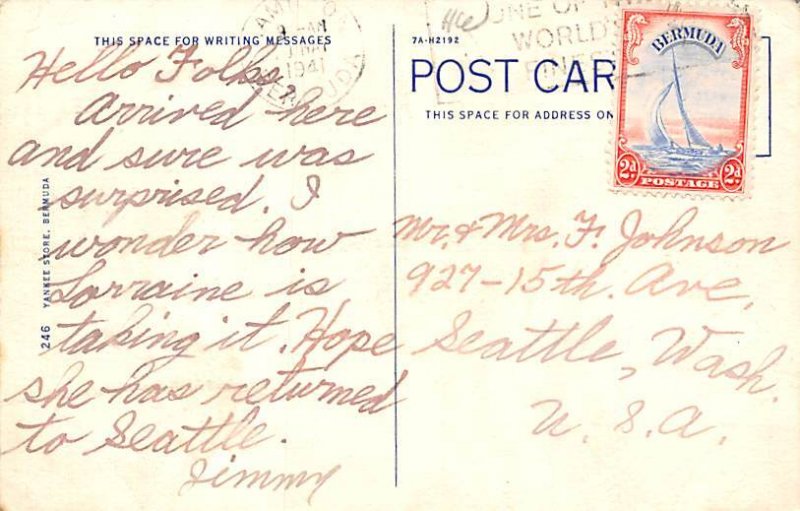 THIS SPACE FOR WRITING MESSAGES
Hello Folks,
Arrived here
and sure was
surprised. I
wonder how
Lorraine is
taking it. Hope
she has returned
to Seattle.
Jimmy
246 YANKEE STORE, BERMUDA
1941
7A-H2192
POST CAR
THIS SPACE FOR ADDRESS ON
ONE OF
WORLD
BERMUDA
2d. POSTAGE 2d.
Mr. & Mrs. F. Johnson
927-15th. Ave.
Seattle, Wash.
U. S. A.